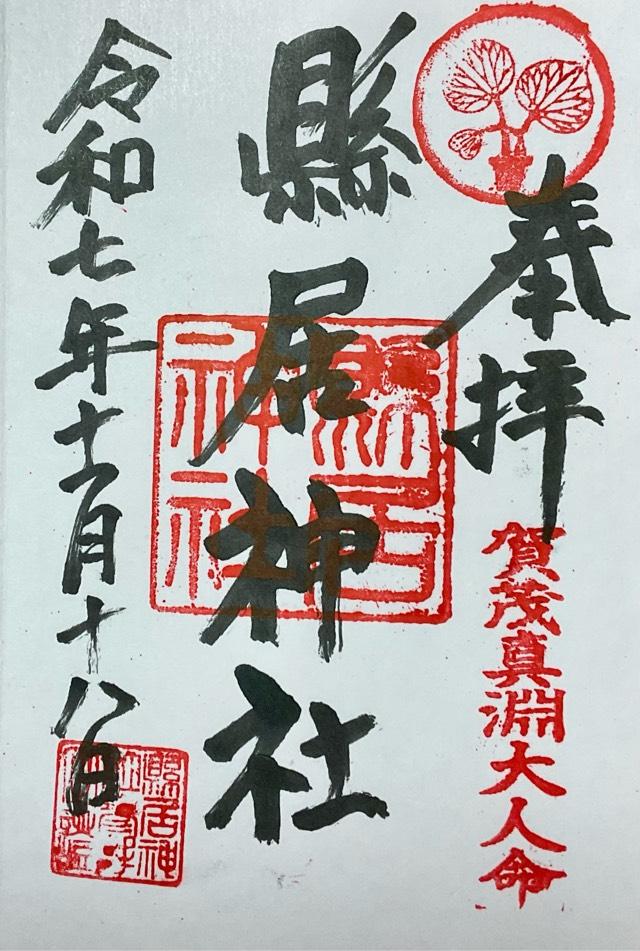 奉拝
賀茂真淵大人命
縣居神社
縣居神社
令和七年十一月十八日